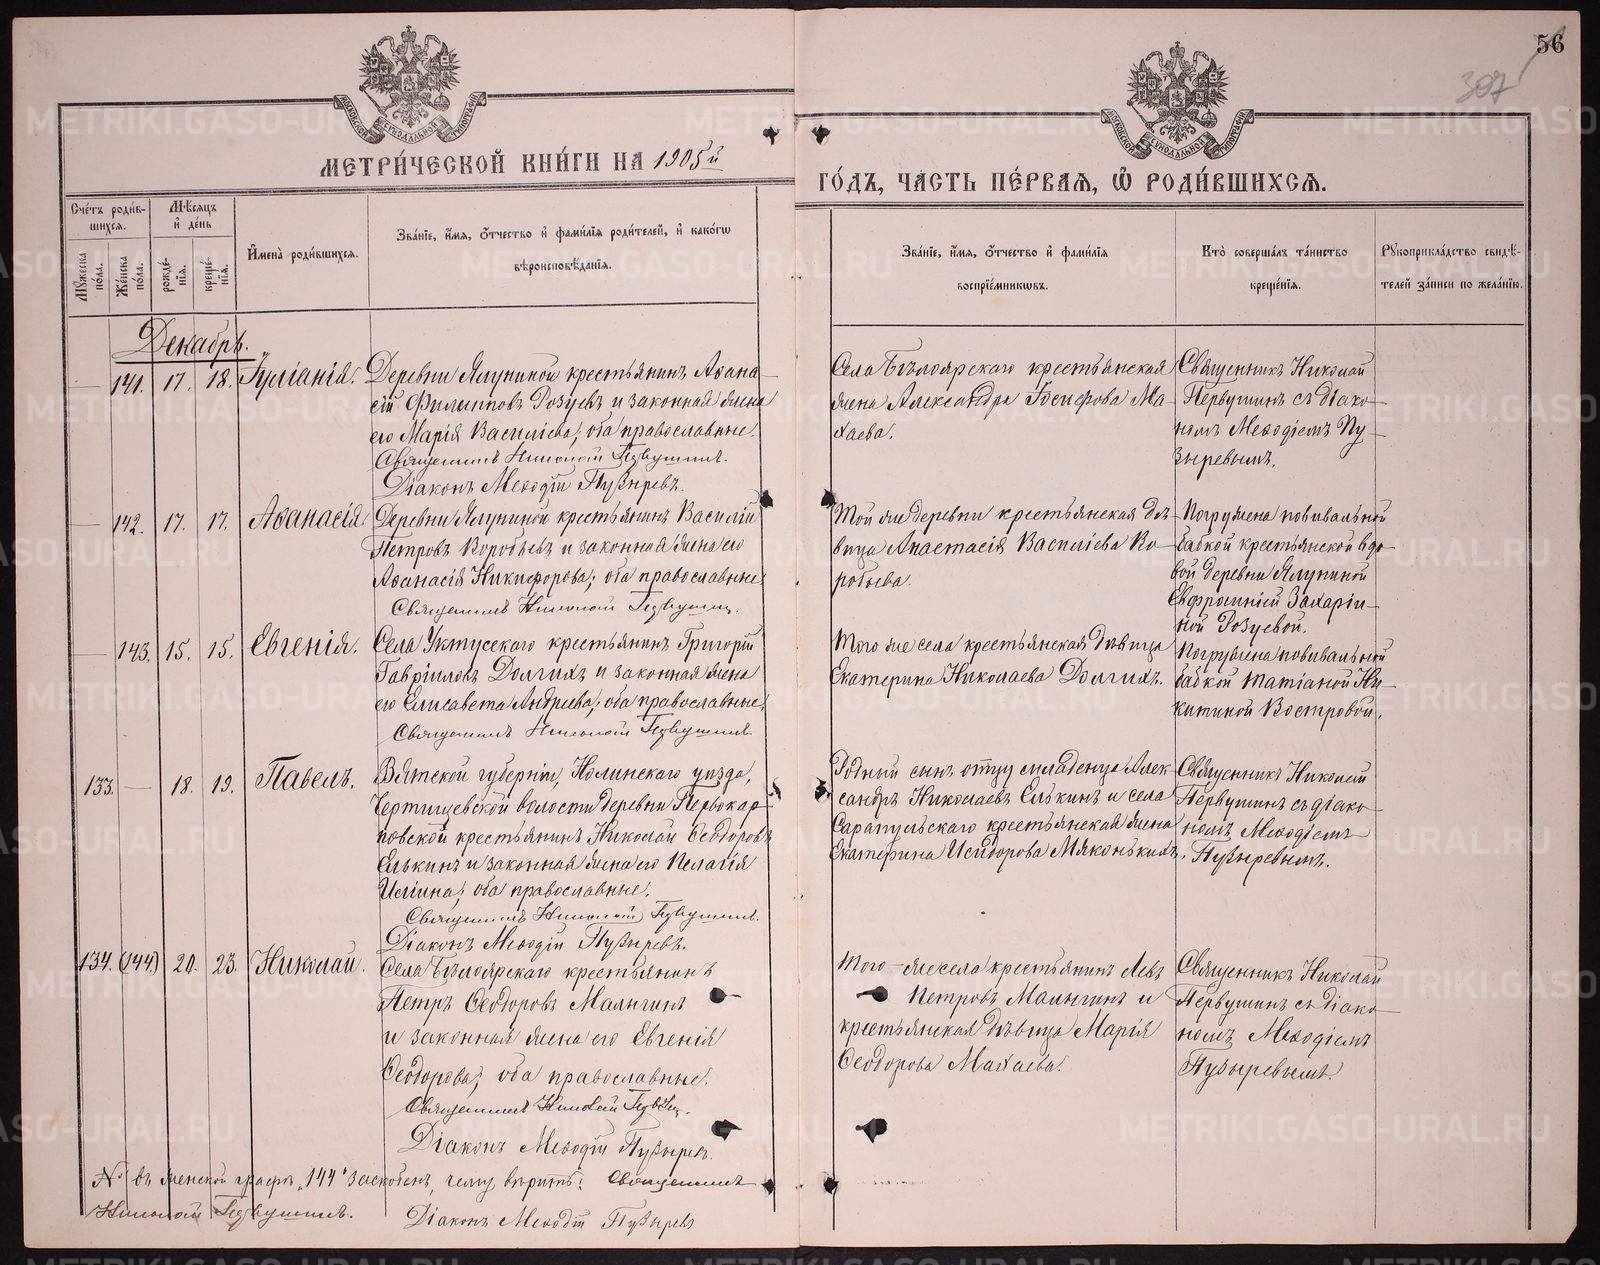 56
307
МОСКОВСКОЙ СУНОДАЛЬНОЙ ТИПОГРАФIИ
МОСКОВСКОЙ СУНОДАЛЬНОЙ ТИПОГРАФIИ
МЕТРИ́ЧЕСКОЙ КНИ́ГИ НА 1905й
ГО́ДЪ, ЧА́СТЬ ПЕ́РВАЯ, Ѽ РОДИ́ВШИХСЯ.
Сче́тъ роди́в-
шихся.
Мѣ́сяцъ
и де́нь
Му́жеска по́ла.
Же́нска по́ла.
рожде́-
нїя.
креще́-
нїя.
Имена̀ роди́вшихся.
Зва́нїе, и́мя, ѻ́тчество и фами́лїя роди́телей, и како́гѡ
вѣроисповѣ́данїя.
Зва́нїе, и́мя, ѻ́тчество и фами́лїя
воспрїе́мникѡвъ.
Кто̀ соверша́лъ та́инство
креще́нїя.
Рукоприкла́дство свидѣ́-
телей за́писи по жела́нїю.
Декабрь.
— 141. 17. 18. Іуліанія.
Деревни Ялуниной крестьянинъ Аѳана-
сій Филипповъ Розуевъ и законная жена
его Марія Василіева; оба православные.
Священникъ Николай Первушинъ.
Діаконъ Меѳодій Пузыревъ.
Села Бѣлоярскаго крестьянская
жена Александра Іосифова Ма-
хаева.
Священникъ Николай
Первушинъ съ діако-
номъ Меѳодіемъ Пу-
зыревымъ.
— 142. 17. 17. Аѳанасія.
Деревни Ялуниной крестьянинъ Василій
Петровъ Воробьевъ и законная жена его
Аѳанасія Никифорова; оба православные.
Священникъ Николай Первушинъ.
Той же деревни крестьянская дѣ-
вица Анастасія Василіева Во-
робьева.
Погружена повивальной
бабкой крестьянской вдо-
вой деревни Ялуниной
Евфросиніей Захаріи-
ной Розуевой.
— 143. 15. 15. Евгенія.
Села Уктусскаго крестьянинъ Григорій
Гавріиловъ Долгихъ и законная жена
его Елисавета Андреева; оба православные.
Священникъ Николай Первушинъ.
Того же села крестьянская дѣвица
Екатерина Николаева Долгихъ.
Погружена повивальной
бабкой Татіаной Ни-
китиной Востровой.
133. — 18. 19. Павелъ.
Вятской губерніи, Нолинскаго уѣзда,
волости деревни Первокар-
повской крестьянинъ Николай Ѳеодоровъ
Елькинъ и законная жена его Пелагія
Иліина; оба православные.
Священникъ Николай Первушинъ.
Діаконъ Меѳодій Пузыревъ.
Родный сынъ отцу младенца Алек-
сандръ Николаевъ Елькинъ и села
Сарапульскаго крестьянская жена
Екатерина Исидорова Мяконькихъ.
Священникъ Николай
Первушинъ съ діако-
номъ Меѳодіемъ
Пузыревымъ.
134. (144.) 20. 23. Николай.
Села Бѣлоярскаго крестьянинъ
Петръ Ѳеодоровъ Малыгинъ
и законная жена его Евгенія
Ѳеодорова; оба православные.
Священникъ Николай
Діаконъ Меѳодій Пузыревъ.
Того-же села крестьянинъ Левъ
Петровъ Малыгинъ и
крестьянская дѣвица Марія
Ѳеодорова Махаева.
Священникъ Николай
Первушинъ съ діако-
номъ Меѳодіемъ
Пузыревымъ.
№ въ женской графѣ „144" заскобленъ, чему вѣрить. Священникъ
Николай Первушинъ.
Діаконъ Меѳодій Пузыревъ
METRIKI.GASO-URAL.RU